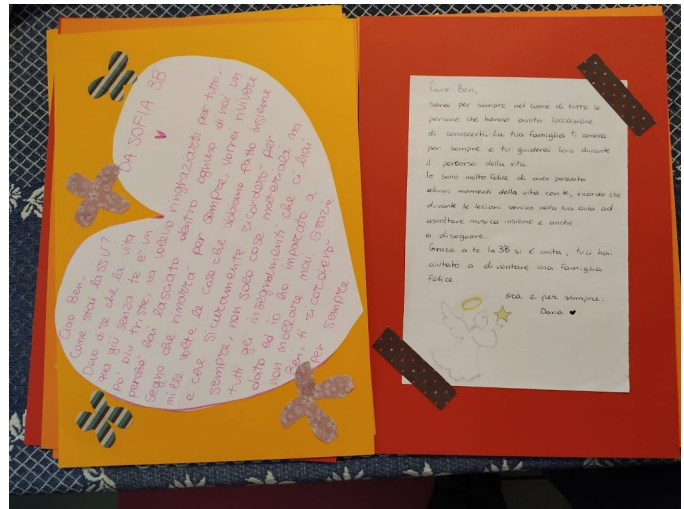 DA SOFIA 3B
Ciao Ben,
Come stai lassù?
Devo dire che la vita
qua giù senza te è un
po' più triste, ma volevo ringraziarti per tutto..
perchè hai lasciato dentro ognuno di noi un
segno che rimarrà per sempre, vorrei rivivere
mille volte le cose che abbiamo fatto insieme
e che sicuramente ricorderò per
sempre, non solo cose materiali ma
tutti gli insegnamenti che ci hai
dato ed io ho imparato a
non mollare mai. Grazie
Ben, ti ricorderò
per sempre
Caro Ben,
sarai per sempre nel cuore di tutte le
persone che hanno avuto l'occasione
di conoscerti. La tua famiglia ti amerà
per sempre e tu guiderai loro durante
il percorso della vita.
Io sono molto felice di aver passato
alcuni momenti della vita con te, ricordo che
durante le lezioni venivo nella tua aula ad
ascoltare musica insieme e anche
a disegnare.
Grazie a te la 3B si è unita, tu ci hai
aiutato a diventare una famiglia
felice.
ora e per sempre.
Daria